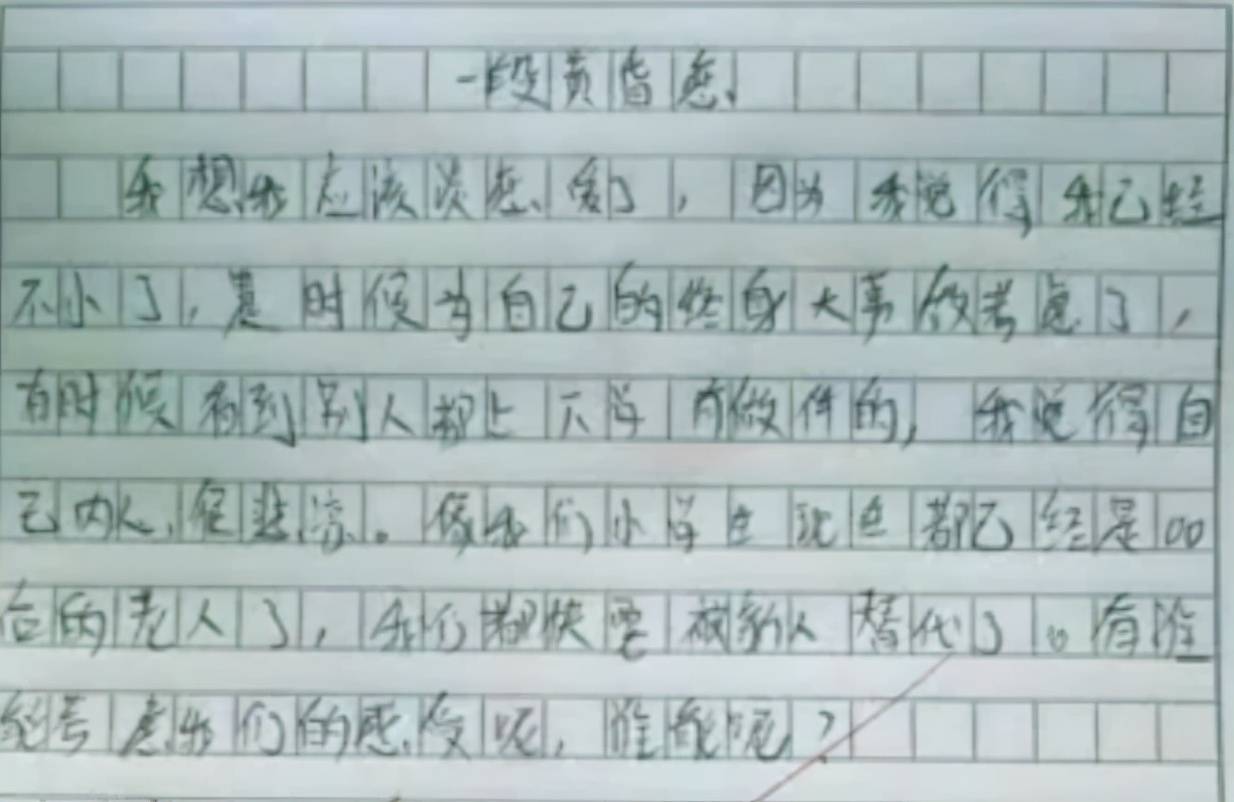 一段黄昏恋
我想我应该谈恋爱了，因为我觉得我已经
不小了，是时候为自己的终身大事做考虑了，
有时候看到别人都上下学有做伴的，我觉得自
己内人很悲凉。像我们小学生现在都已经是00
后的老人了，我们都快要被新人替代了。有谁
能考虑我们的感受呢，谁能呢？